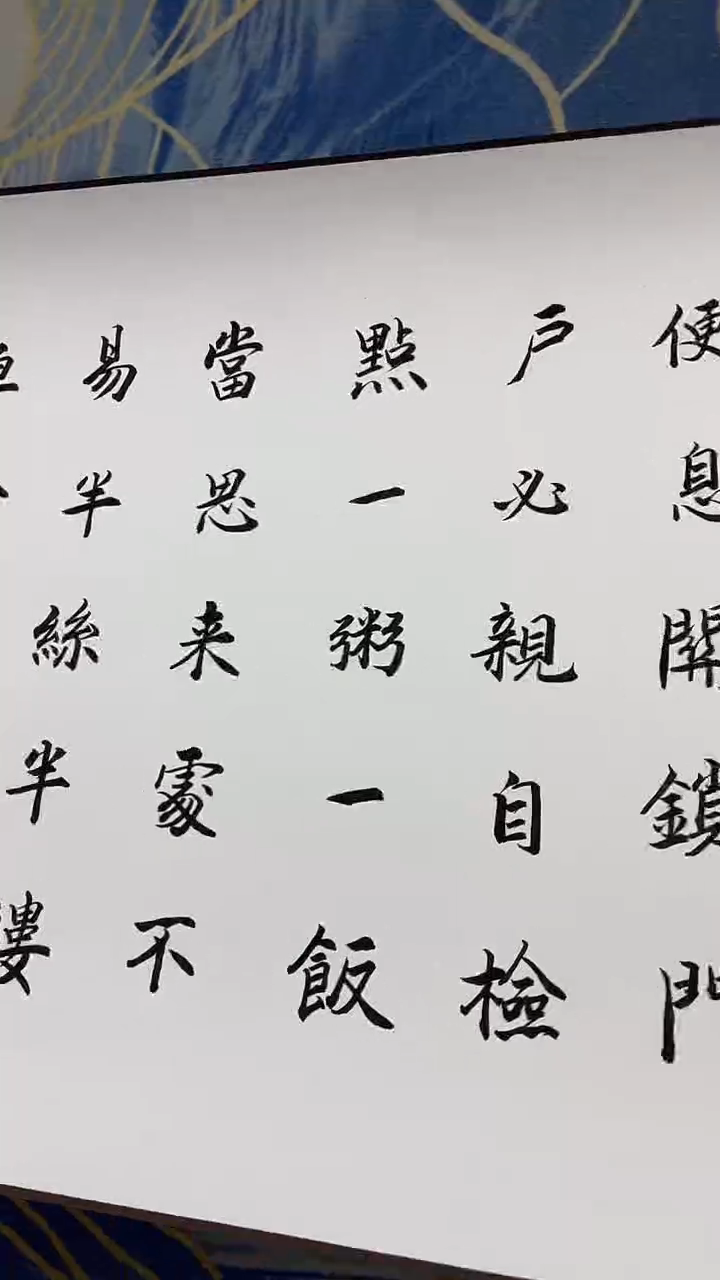 便息關鎖門
戶必親自檢
點一粥一飯
當思来處不
易半絲半縷